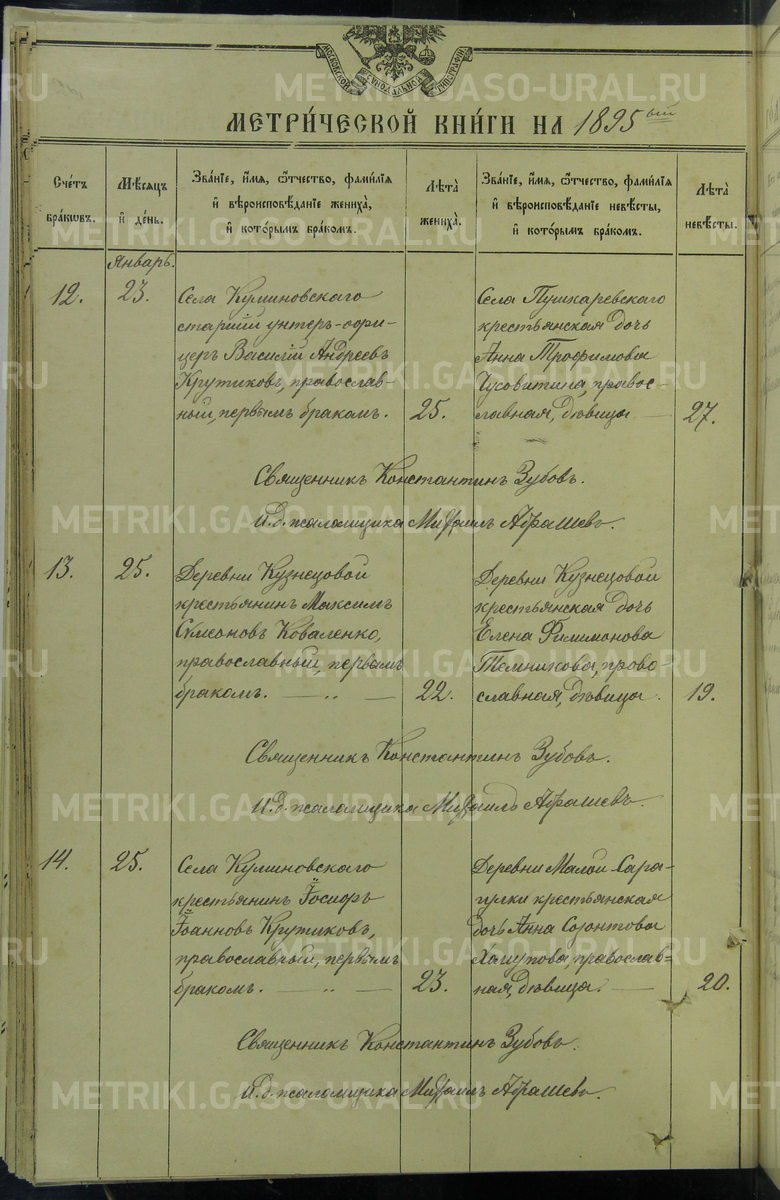 МОСКОВСКОЙ СѴНОДАЛЬНОЙ ТИПОГРАФІИ
METRIKI.GASO-URAL.RU
МЕТРИ́ЧЕСКОЙ КНИ́ГИ НА 1895ый
Сче́тъ бра́кѡвъ.
Мѣ́сяцъ и҆ де́нь.
Зва́нїе, и҆́мя, ѻ҆́тчество, фами́лїя
и҆ вѣроисповѣ́данїе жениха̀,
и҆ кото́рымъ бра́комъ.
Лѣ́та̀ жениха̀.
Зва́нїе, и҆́мя, ѻ҆́тчество, фами́лїя
и҆ вѣроисповѣ́данїе невѣ́сты,
и҆ кото́рымъ бра́комъ.
Лѣ́та̀ невѣ́сты.
Январь.
12.
23.
Села Куминовскаго
старшій унтеръ-офи-
церъ Василій Андреевъ
Крутиковъ, православ-
ный, первымъ бракомъ.
25.
Села Пушкаревскаго
крестьянская дочь
Анна Трофимова
Чусовитина, правос-
лавная, дѣвица
27.
Священникъ Константинъ Зубовъ.
И. д. псаломщика Михаилъ Абрашевъ.
13.
25.
Деревни Кузнецовой
крестьянинъ Максимъ
Сѵмеоновъ Коваленко,
православный, первымъ
бракомъ. — „ —
22.
Деревни Кузнецовой
крестьянская дочь
Елена Филимонова
Темникова, право-
славная, дѣвица.
19.
Священникъ Константинъ Зубовъ.
И. д. псаломщика Михаилъ Абрашевъ.
14.
25.
Села Куминовскаго
крестьянинъ Іосифъ
Іоанновъ Крутиковъ,
православный, первымъ
бракомъ. — „ —
23.
Деревни Малой Сара-
пулки крестьянская
дочь Анна Созонтова
православ-
ная, дѣвица. —
20.
Священникъ Константинъ Зубовъ.
И. д. псаломщика Михаилъ Абрашевъ.